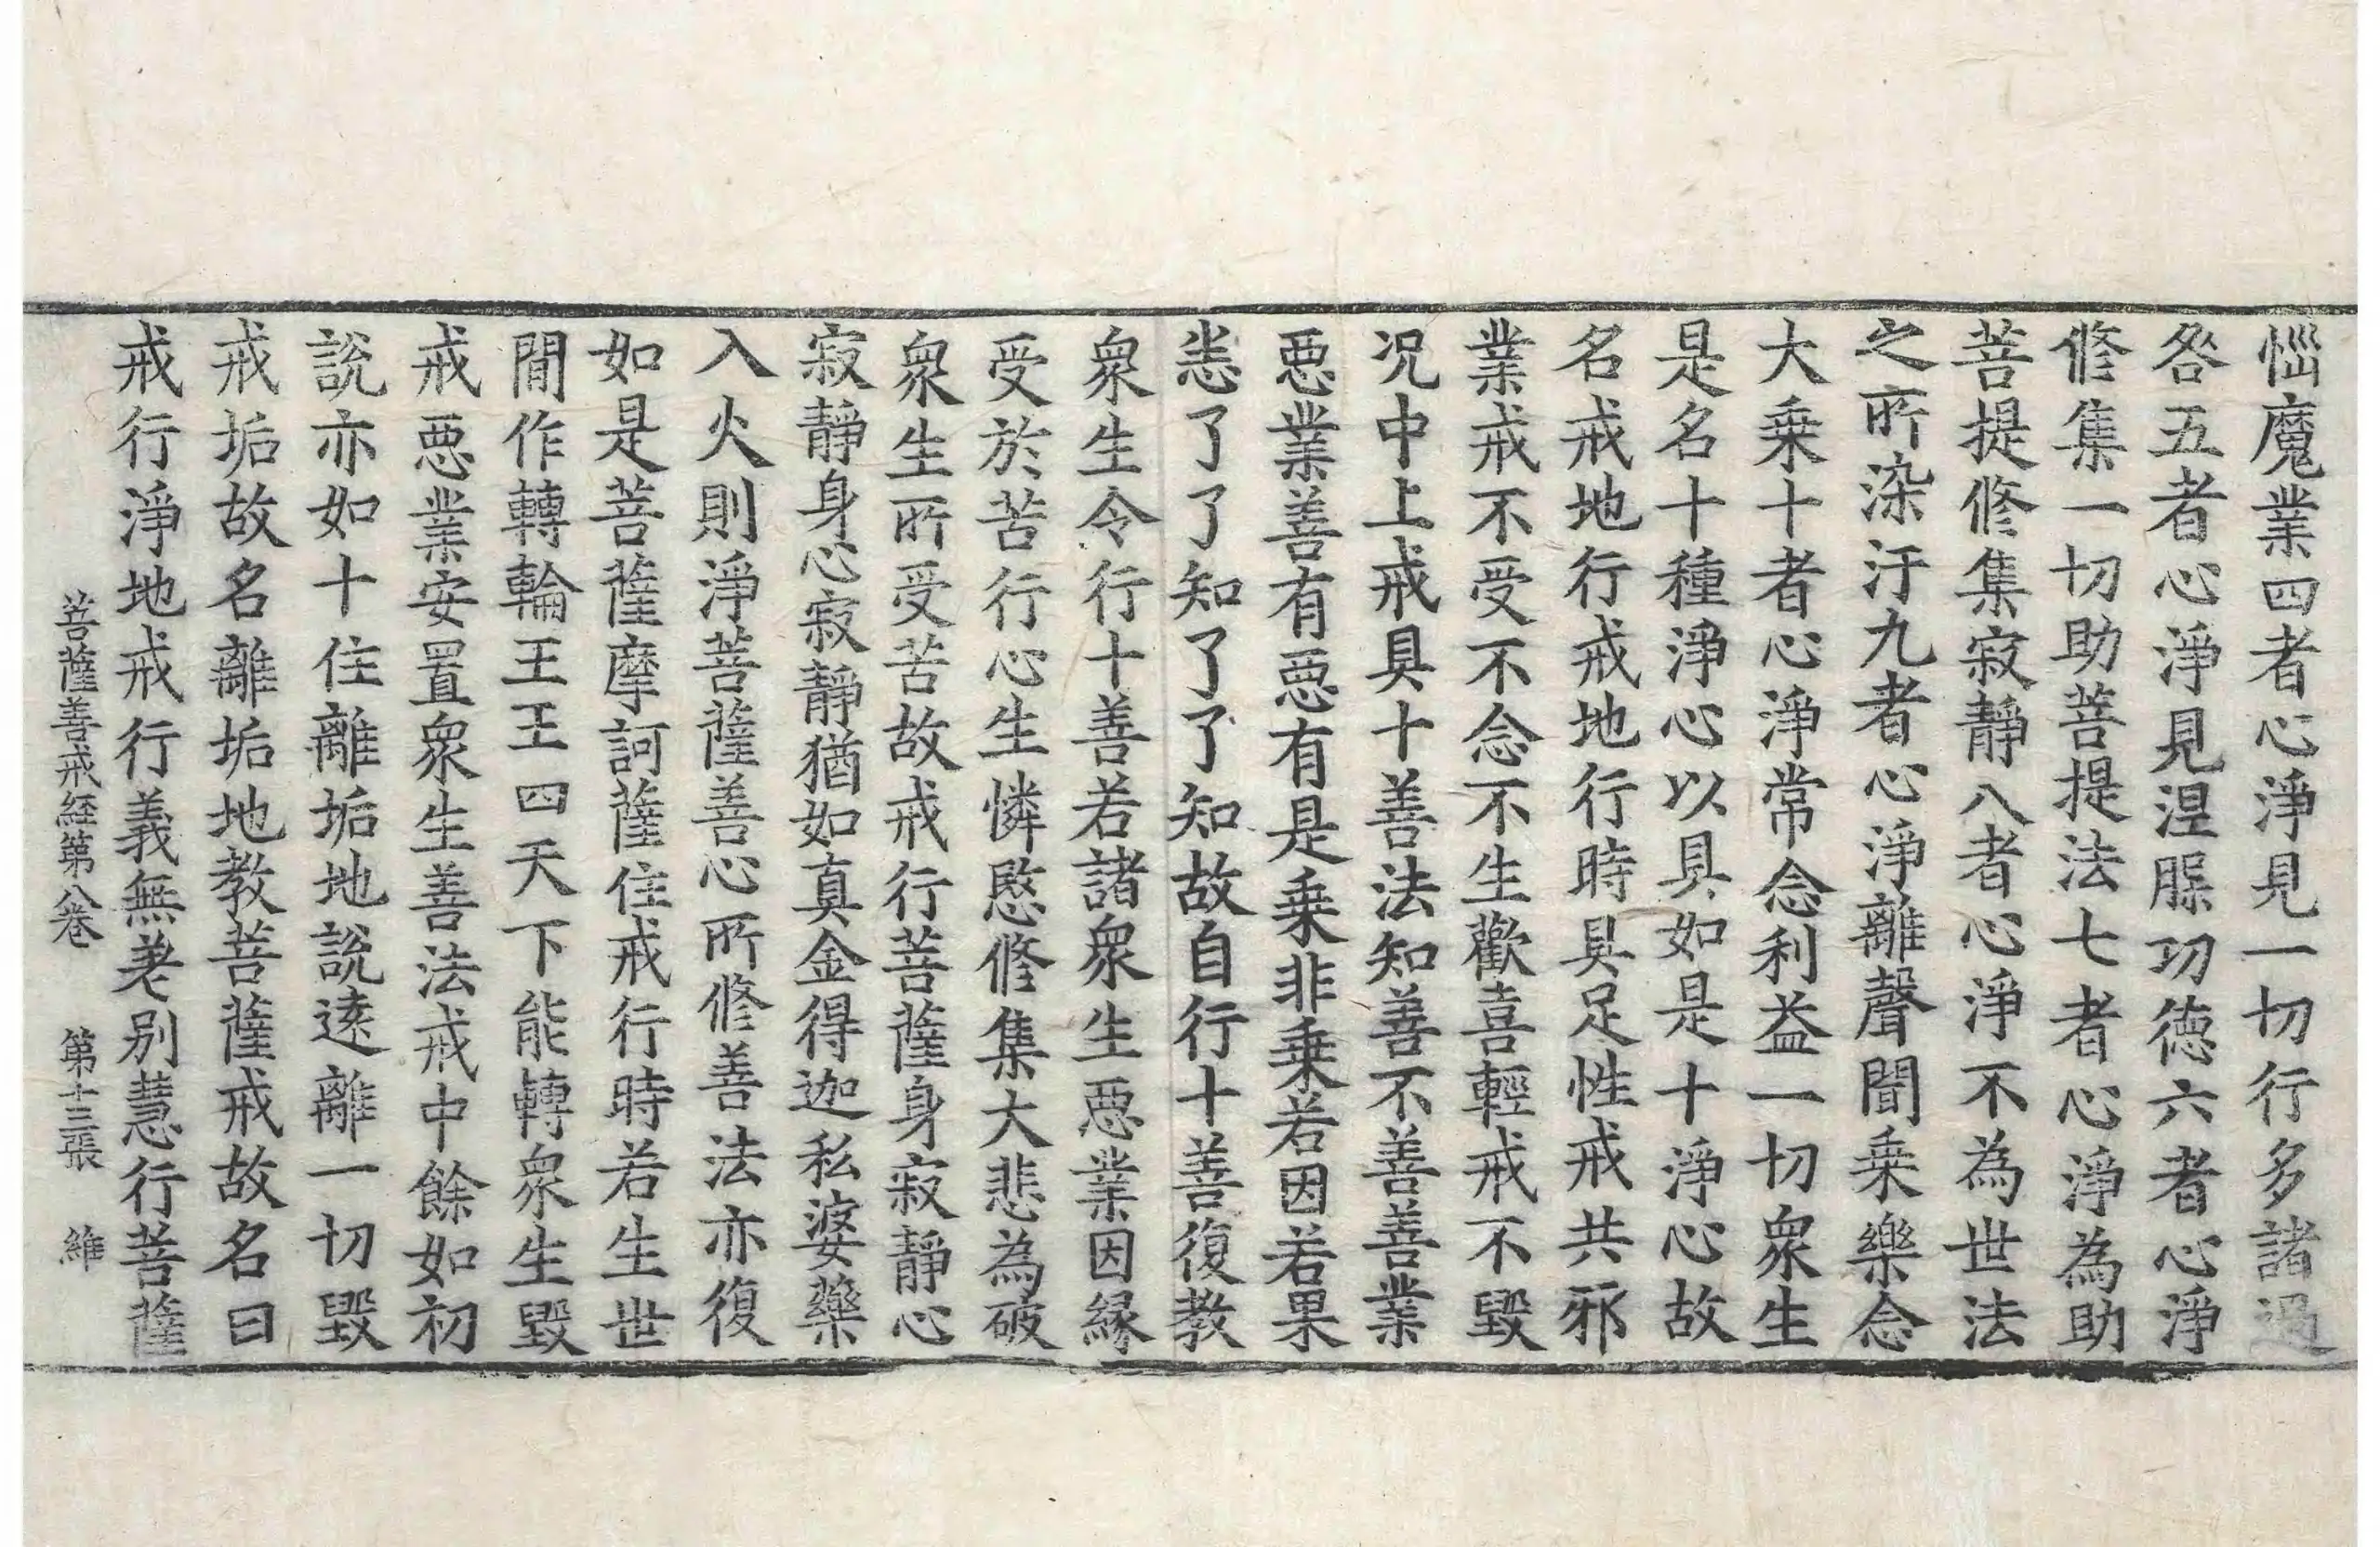 惱魔業四者心淨見一切行多諸過
咎五者心淨見涅槃功德六者心淨
修集一切助菩提法七者心淨為助
菩提修集寂靜八者心淨不為世法
之所染汙九者心淨離聲聞乗樂念
大乗十者心淨常念利益一切衆生
是名十種淨心以具如是十淨心故
名戒地行戒地行時具足性戒共邪
業戒不受不念不生歡喜輕戒不毀
况中上戒具十善法知善不善善業
惡業善有惡有是乗非乗若因若果
恙了了知了了知故自行十善復教
衆生令行十善若諸衆生惡業因縁
受於苦行心生憐愍修集大悲為破
衆生所受苦故戒行菩薩身寂靜心
寂靜身心寂靜猶如真金得迦私婆藥
入火則淨菩薩善心所修善法亦復
如是菩薩摩訶薩住戒行時若生世
間作轉輪王王四天下能轉衆生毀
戒惡業安置衆生善法戒中餘如初
說亦如十住離垢地說遠離一切毀
戒垢故名離垢地教菩薩戒故名曰
戒行淨地戒行義無差别慧行菩薩
菩薩善戒経第八卷 第十三張 維